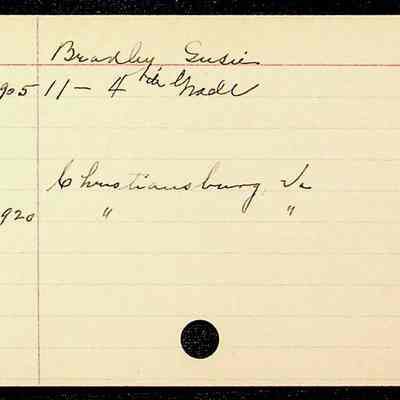 Bradley Susie
905 11 - 4th Grade
Christiansburg, Va
920 " "